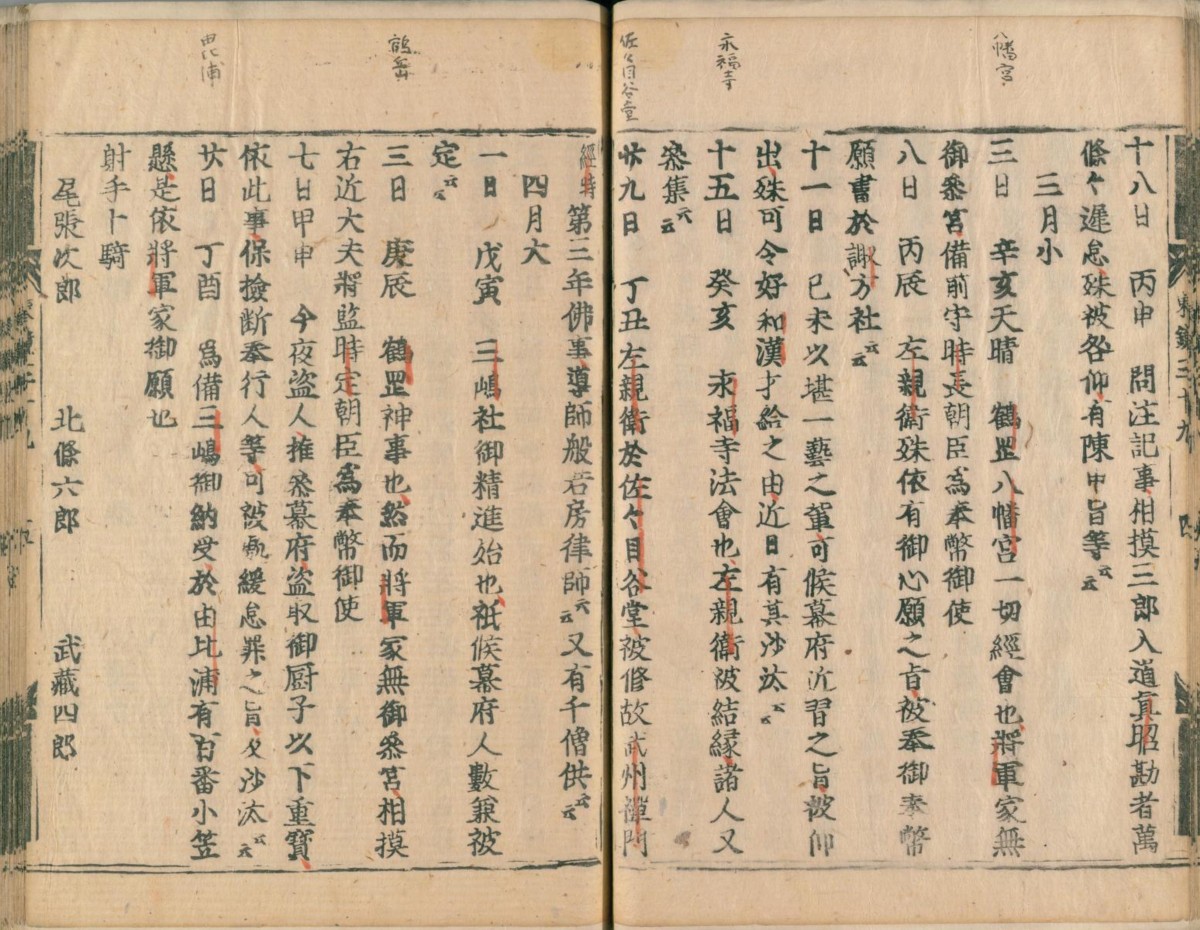 八幡宮
永福寺
佐々目谷堂
十八日　丙申　問注記事相摸三郎入道真昭勘者萬
條々遲怠殊被咎仰有陳申旨等云云
三月小
三日　辛亥天晴　鶴罡八幡宮一切經會也將軍家無
御参宮備前守時長朝臣爲奉幣御使
八日　丙辰　左親衛殊依有御心願之旨被奉御奉幣
願書於諏方社云云
十一日　己未以堪一藝之輩可候幕府近習之旨被仰
出殊可令好和漢才給之由近日有其沙汰云云
十五日　癸亥　永福寺法會也左親衛被結縁諸人又
参集云云
廿九日　丁丑左親衛於佐々目谷堂被修故武州禪門
鶴岳
由比浦
經時第三年佛事導師般若房律師云云又有千僧供云云
四月大
一日　戊寅　三嶋社御精進始也祇候幕府人數兼被
定云云
三日　庚辰　鶴罡神事也然而將軍家無御参宮相摸
右近大夫將監時定朝臣爲奉幣御使
七日甲申　今夜盗人推参幕府盗取御厨子以下重寶
依此事保撿断奉行人等可被処緩怠罪之旨及沙汰云云
廿日　丁酉　爲備三嶋御納受於由比浦有百番小笠
懸是依將軍家御願也
射手卜騎
尾張次郎　北條六郎　武藏四郎
東鑑三十九　四